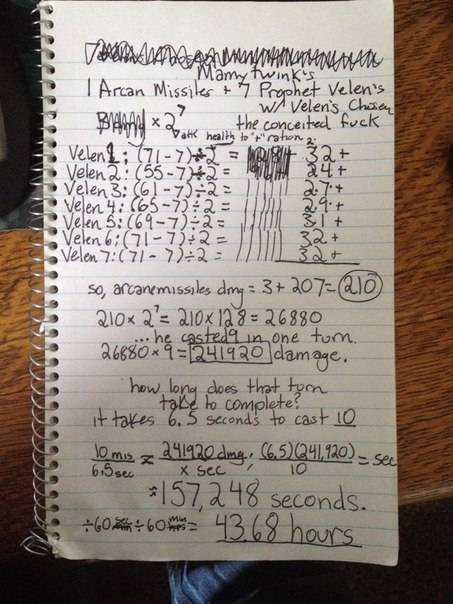 Mamytwink's
1 Arcan Missiles + 7 Prophet Velen's
w/ Velen's Chosen
× 2⁷ the conceited fuck
atk health to "+" ration 2:
Velen 1: (71-7)÷2 = 32+
Velen 2: (55-7)÷2 = 24+
Velen 3: (61-7)÷2 = 27+
Velen 4: (65-7)÷2 = 29+
Velen 5: (69-7)÷2 = 31+
Velen 6: (71-7)÷2 = 32+
Velen 7: (71-7)÷2 = 32+
so, arcanemissiles dmg = 3 + 207 = 210
210 × 2⁷ = 210 × 128 = 26880
... he casted 9 in one turn.
26880 × 9 = 241920 damage.
how long does that turn
take to complete?
it takes 6.5 seconds to cast 10
10 mis / 6.5 sec = 241920 dmg / x sec ; (6.5)(241,920) / 10 = sec
157,248 seconds.
÷60 ÷60 = 43.68 hours